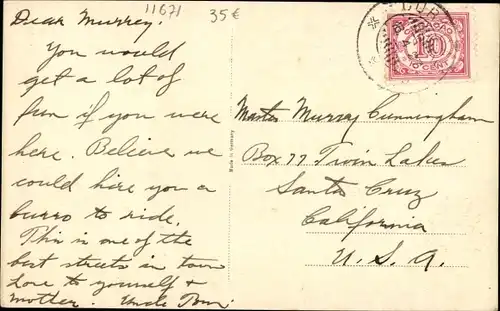 11671
35€
Dear Murrey:
You would
get a lot of
fun if you were
here. Believe we
could hire you a
burro to ride.
This is one of the
best streets in town
Love to yourself &
mother. Uncle Tom.
Master Murrey Cunningham
Box 77 Twin Lakes
Santa Cruz
California
U. S. A.
10
CENT